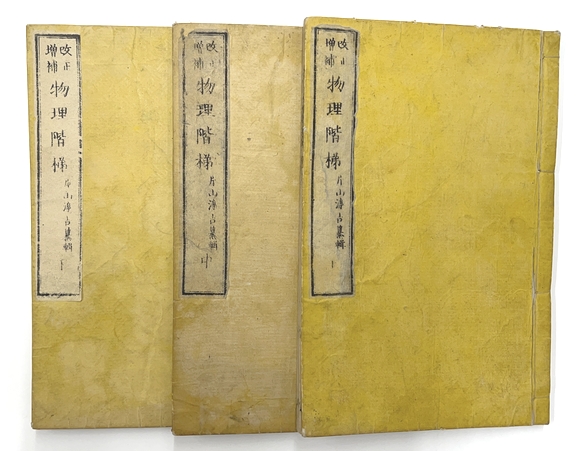 改正
增補
物理階梯
片山淳吉纂輯 上
改正
增補
物理階梯
片山淳吉纂輯 中
改正
增補
物理階梯
片山淳吉纂輯 下